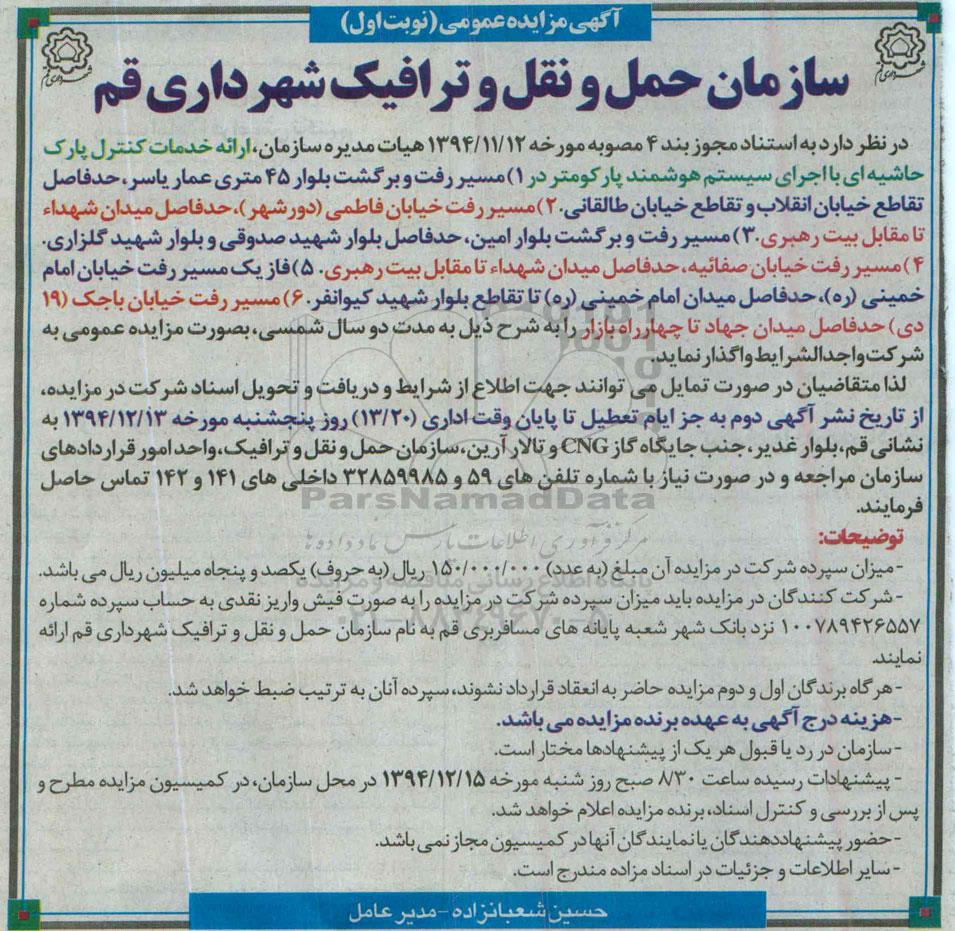 آگهی مزایده عمومی (نوبت اول)
سازمان حمل و نقل و ترافیک شهرداری قم
در نظر دارد به استناد مجوز بند ۴ مصوبه مورخه ۱۳۹۴/۱۱/۱۲ هیات مدیره سازمان، ارائه خدمات کنترل پارک
حاشیه ای با اجرای سیستم هوشمند پارکومتر در ۱) مسیر رفت و برگشت بلوار ۴۵ متری عمار یاسر، حدفاصل
تقاطع خیابان انقلاب و تقاطع خیابان طالقانی. ۲) مسیر رفت خیابان فاطمی (دورشهر)، حدفاصل میدان شهداء
تا مقابل بیت رهبری. ۳) مسیر رفت و برگشت بلوار امین، حدفاصل بلوار شهید صدوقی و بلوار شهید گلزاری.
۴) مسیر رفت خیابان صفائیه، حدفاصل میدان شهداء تا مقابل بیت رهبری. ۵) فاز یک مسیر رفت خیابان امام
خمینی (ره)، حدفاصل میدان امام خمینی (ره) تا تقاطع بلوار شهید کیوانفر. ۶) مسیر رفت خیابان باجک (۱۹
دی) حدفاصل میدان جهاد تا چهارراه بازار را به شرح ذیل به مدت دو سال شمسی، بصورت مزایده عمومی به
شرکت واجدالشرایط واگذار نماید.
لذا متقاضیان در صورت تمایل می توانند جهت اطلاع از شرایط و دریافت و تحویل اسناد شرکت در مزایده،
از تاریخ نشر آگهی دوم به جز ایام تعطیل تا پایان وقت اداری (۱۳/۲۰) روز پنجشنبه مورخه ۱۳۹۴/۱۲/۱۳ به
نشانی قم، بلوار غدیر، جنب جایگاه گاز CNG و تالار آرین، سازمان حمل و نقل و ترافیک، واحد امور قراردادهای
سازمان مراجعه و در صورت نیاز با شماره تلفن های ۵۹ و ۳۲۸۵۹۹۸۵ داخلی های ۱۴۱ و ۱۴۲ تماس حاصل
فرمایند.
ParsNamadData
مرکز فرآوری اطلاعات پارس نماد داده ها
توضیحات:
- میزان سپرده شرکت در مزایده آن مبلغ (به عدد) ۱۵۰/۰۰۰/۰۰۰ ریال (به حروف) یکصد و پنجاه میلیون ریال می باشد.
پایگاه اطلاع رسانی مناقصه و مزایده
- شرکت کنندگان در مزایده باید میزان سپرده شرکت در مزایده را به صورت فیش واریز نقدی به حساب سپرده شماره
۱۰۰۷۸۹۴۲۶۵۵۷ نزد بانک شهر شعبه پایانه های مسافربری قم به نام سازمان حمل و نقل و ترافیک شهرداری قم ارائه
نمایند.
- هرگاه برندگان اول و دوم مزایده حاضر به انعقاد قرارداد نشوند، سپرده آنان به ترتیب ضبط خواهد شد.
- هزینه درج آگهی به عهده برنده مزایده می باشد.
- سازمان در رد یا قبول هر یک از پیشنهادها مختار است.
- پیشنهادات رسیده ساعت ۸/۳۰ صبح روز شنبه مورخه ۱۳۹۴/۱۲/۱۵ در محل سازمان، در کمیسیون مزایده مطرح و
پس از بررسی و کنترل اسناد، برنده مزایده اعلام خواهد شد.
- حضور پیشنهاددهندگان یا نمایندگان آنها در کمیسیون مجاز نمی باشد.
- سایر اطلاعات و جزئیات در اسناد مزاده مندرج است.
حسین شعبانزاده - مدیر عامل